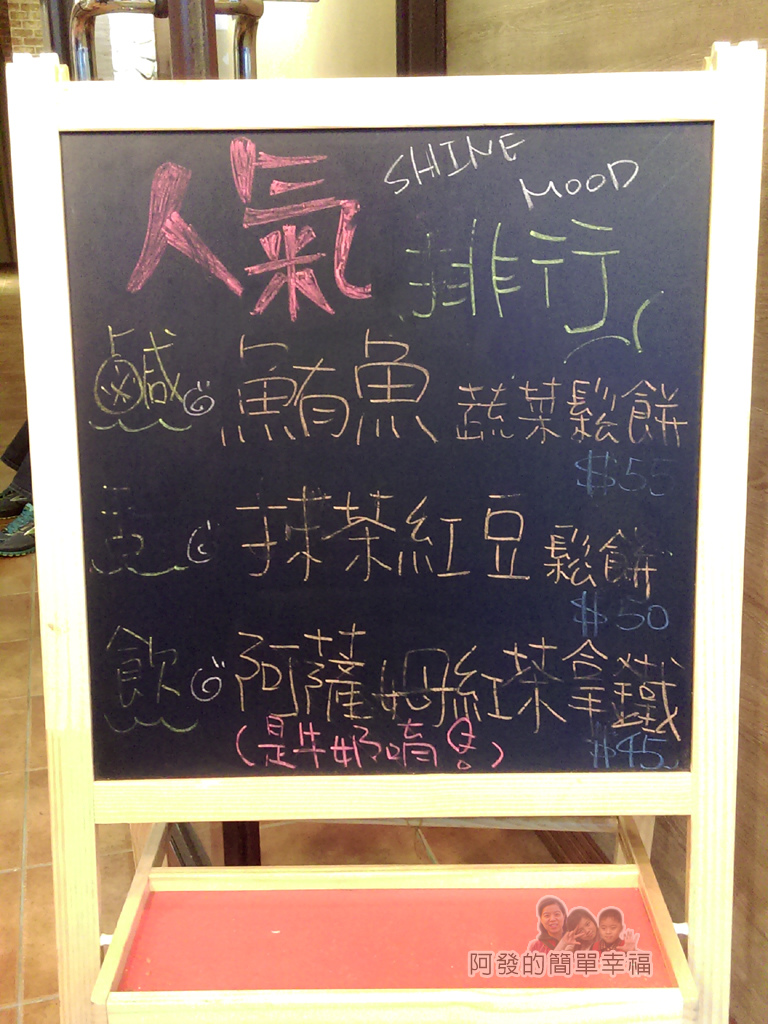 SHINE MOOD
人氣排行
鹹 鮪魚蔬菜鬆餅
$55
抹茶紅豆鬆餅
$50
飲 阿薩姆紅茶拿鐵
(是牛奶唷!)
$45
阿發的簡單幸福